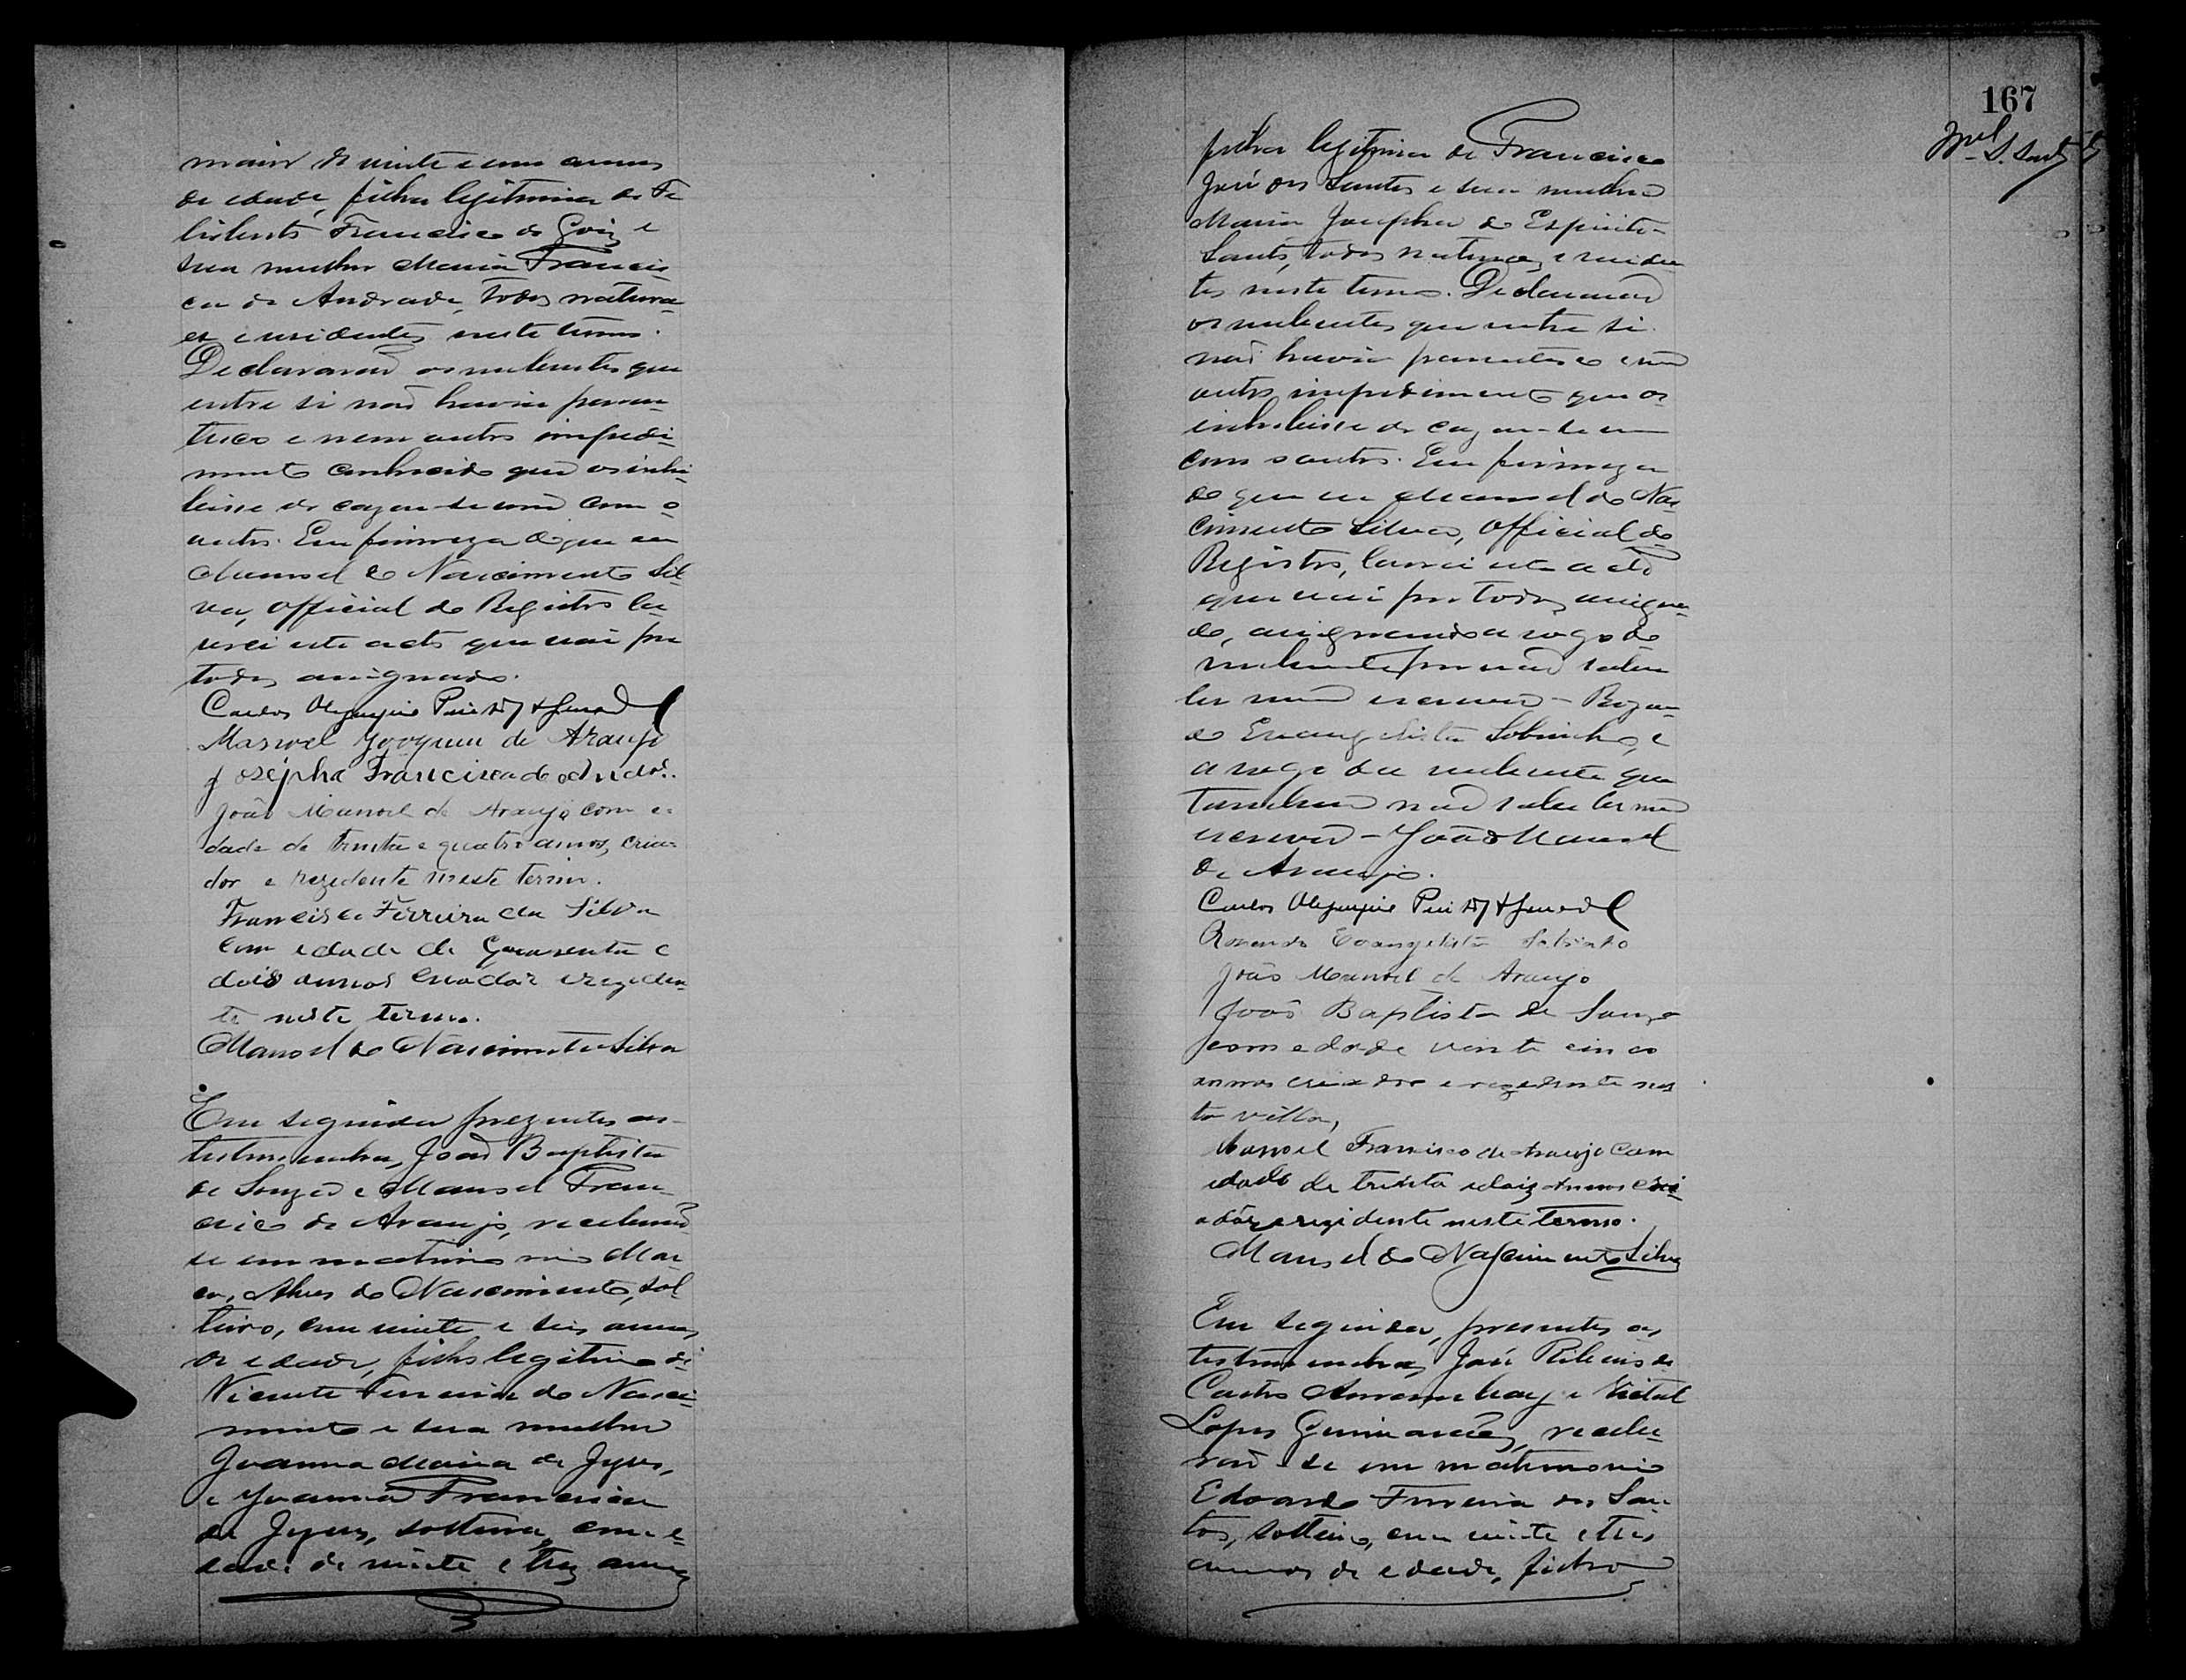 maior de vinte e um annos
de edade, filha legitima de Fe
lisberto Francisco de Goiz e
sua mulher Maria Francis-
ca de Andrade, todos natura-
es e residentes neste termo.
Declararaõ os nubentes que
entre si naõ havia paren-
tesco e nem outro impedi-
mento conhecido que os inhi-
bisse de cazar-se um com o
outro. Em firmeza de que eu
Manoel do Nascimento Sil-
va, official do Registro la-
vrei este acto que vai por
todos assignado.
Carlos Olympio
Manoel Joaquim de Araujo
Josépha Francisca de
João Manoel de Araujo com e-
dade de trinta e quatro annos, cria-
dor e rezedente neste termo.
Francisco Ferreira da Silva
com edade de Quarenta e
dois annos criador e reziden
te neste termo.
Manoel do Nascimento Silva
Em seguida prezentes as
testemunhas, Joaõ Baptista
de Souza e Manoel Fran-
cisco de Araujo, receberaõ
se em matrimonio Mar-
cos Alves do Nascimento, sol-
teiro, com vinte e seis annos
de edade, filho legitimo de
Vicente Ferreira do Nasci-
mento e sua mulher
Joanna Maria de Jezus,
e Joanna Francisca
de Jezus, solteira, com e-
dade de vinte e trez annos
167
filha legitima de Francisco
José dos Santos e sua mulher
Maria Josepha do Espirito-
Santo, todos naturaes e residen
tes neste termo. Declararaõ
os nubentes que entre si
naõ havia parentesco e nem
outro impedimento que os
inhibisse de cazar-se um
com o outro. Em firmeza
do que eu Manoel do Nas-
cimento Silva, official do
Registro, lavrei este acto
que vai por todos assigna-
do, assignando a rogo do
nubente por naõ saber
ler nem escrever - Rozen-
do Evangelista Sobrinho, e
a rogo da nubente que
tambem naõ sabe ler nem
escrever - João Manoel
de Araujo.
Carlos Olympio
Rosendo Evangelista Sobrinho
João Manoel de Araujo
João Baptista de Souza
com edade vinte cinco
annos criador e rezedente nes
ta villa,
Manoel Francisco de Araujo com
edade de trinta e dois annos cri-
adôr e rezidente neste termo.
Manoel do Nascimento Silva
Em seguida, presentes as
testemunhas, José Ribeiro de
Castro e Victal
Lopes Guimarães, recebe-
raõ-se em matrimonio
Edoardo Ferreira dos San-
tos, solteiro, com vinte e tres
annos de edade, filho